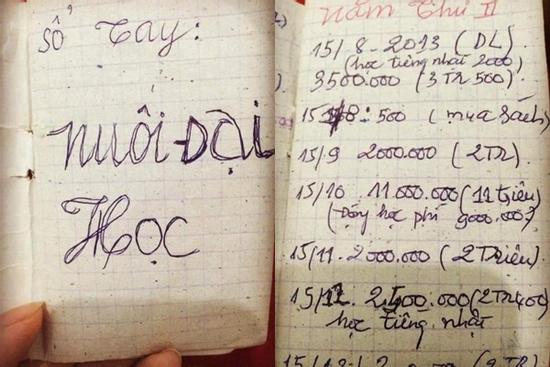 Sổ Tay:
NUÔI ĐẠI
HỌC
Năm Thứ II
15/8-2013 (DL)
(học tiếng nhật 2000)
3500.000 (3TR500)
15/8: 500 (mua sách)
15/9 2000.000 (2TR).
15/10 11.000.000 (11 triệu)
(Đóng học phí 9000.000)
15/11. 2.000.000 (2Triệu).
15/12. 2.400.000 (2TR400)
học tiếng nhật